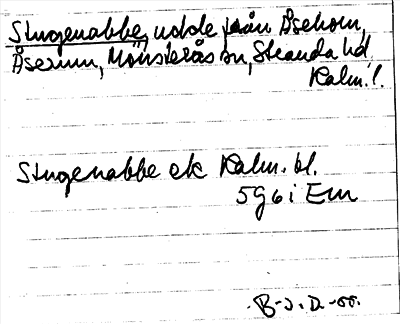 Slingenabbe, udde från Åseholm,
Åserum, Mönsterås sn, Stranda hd
Kalm. l.
Slingenabbe ek Kalm. bl.
5g6i Em